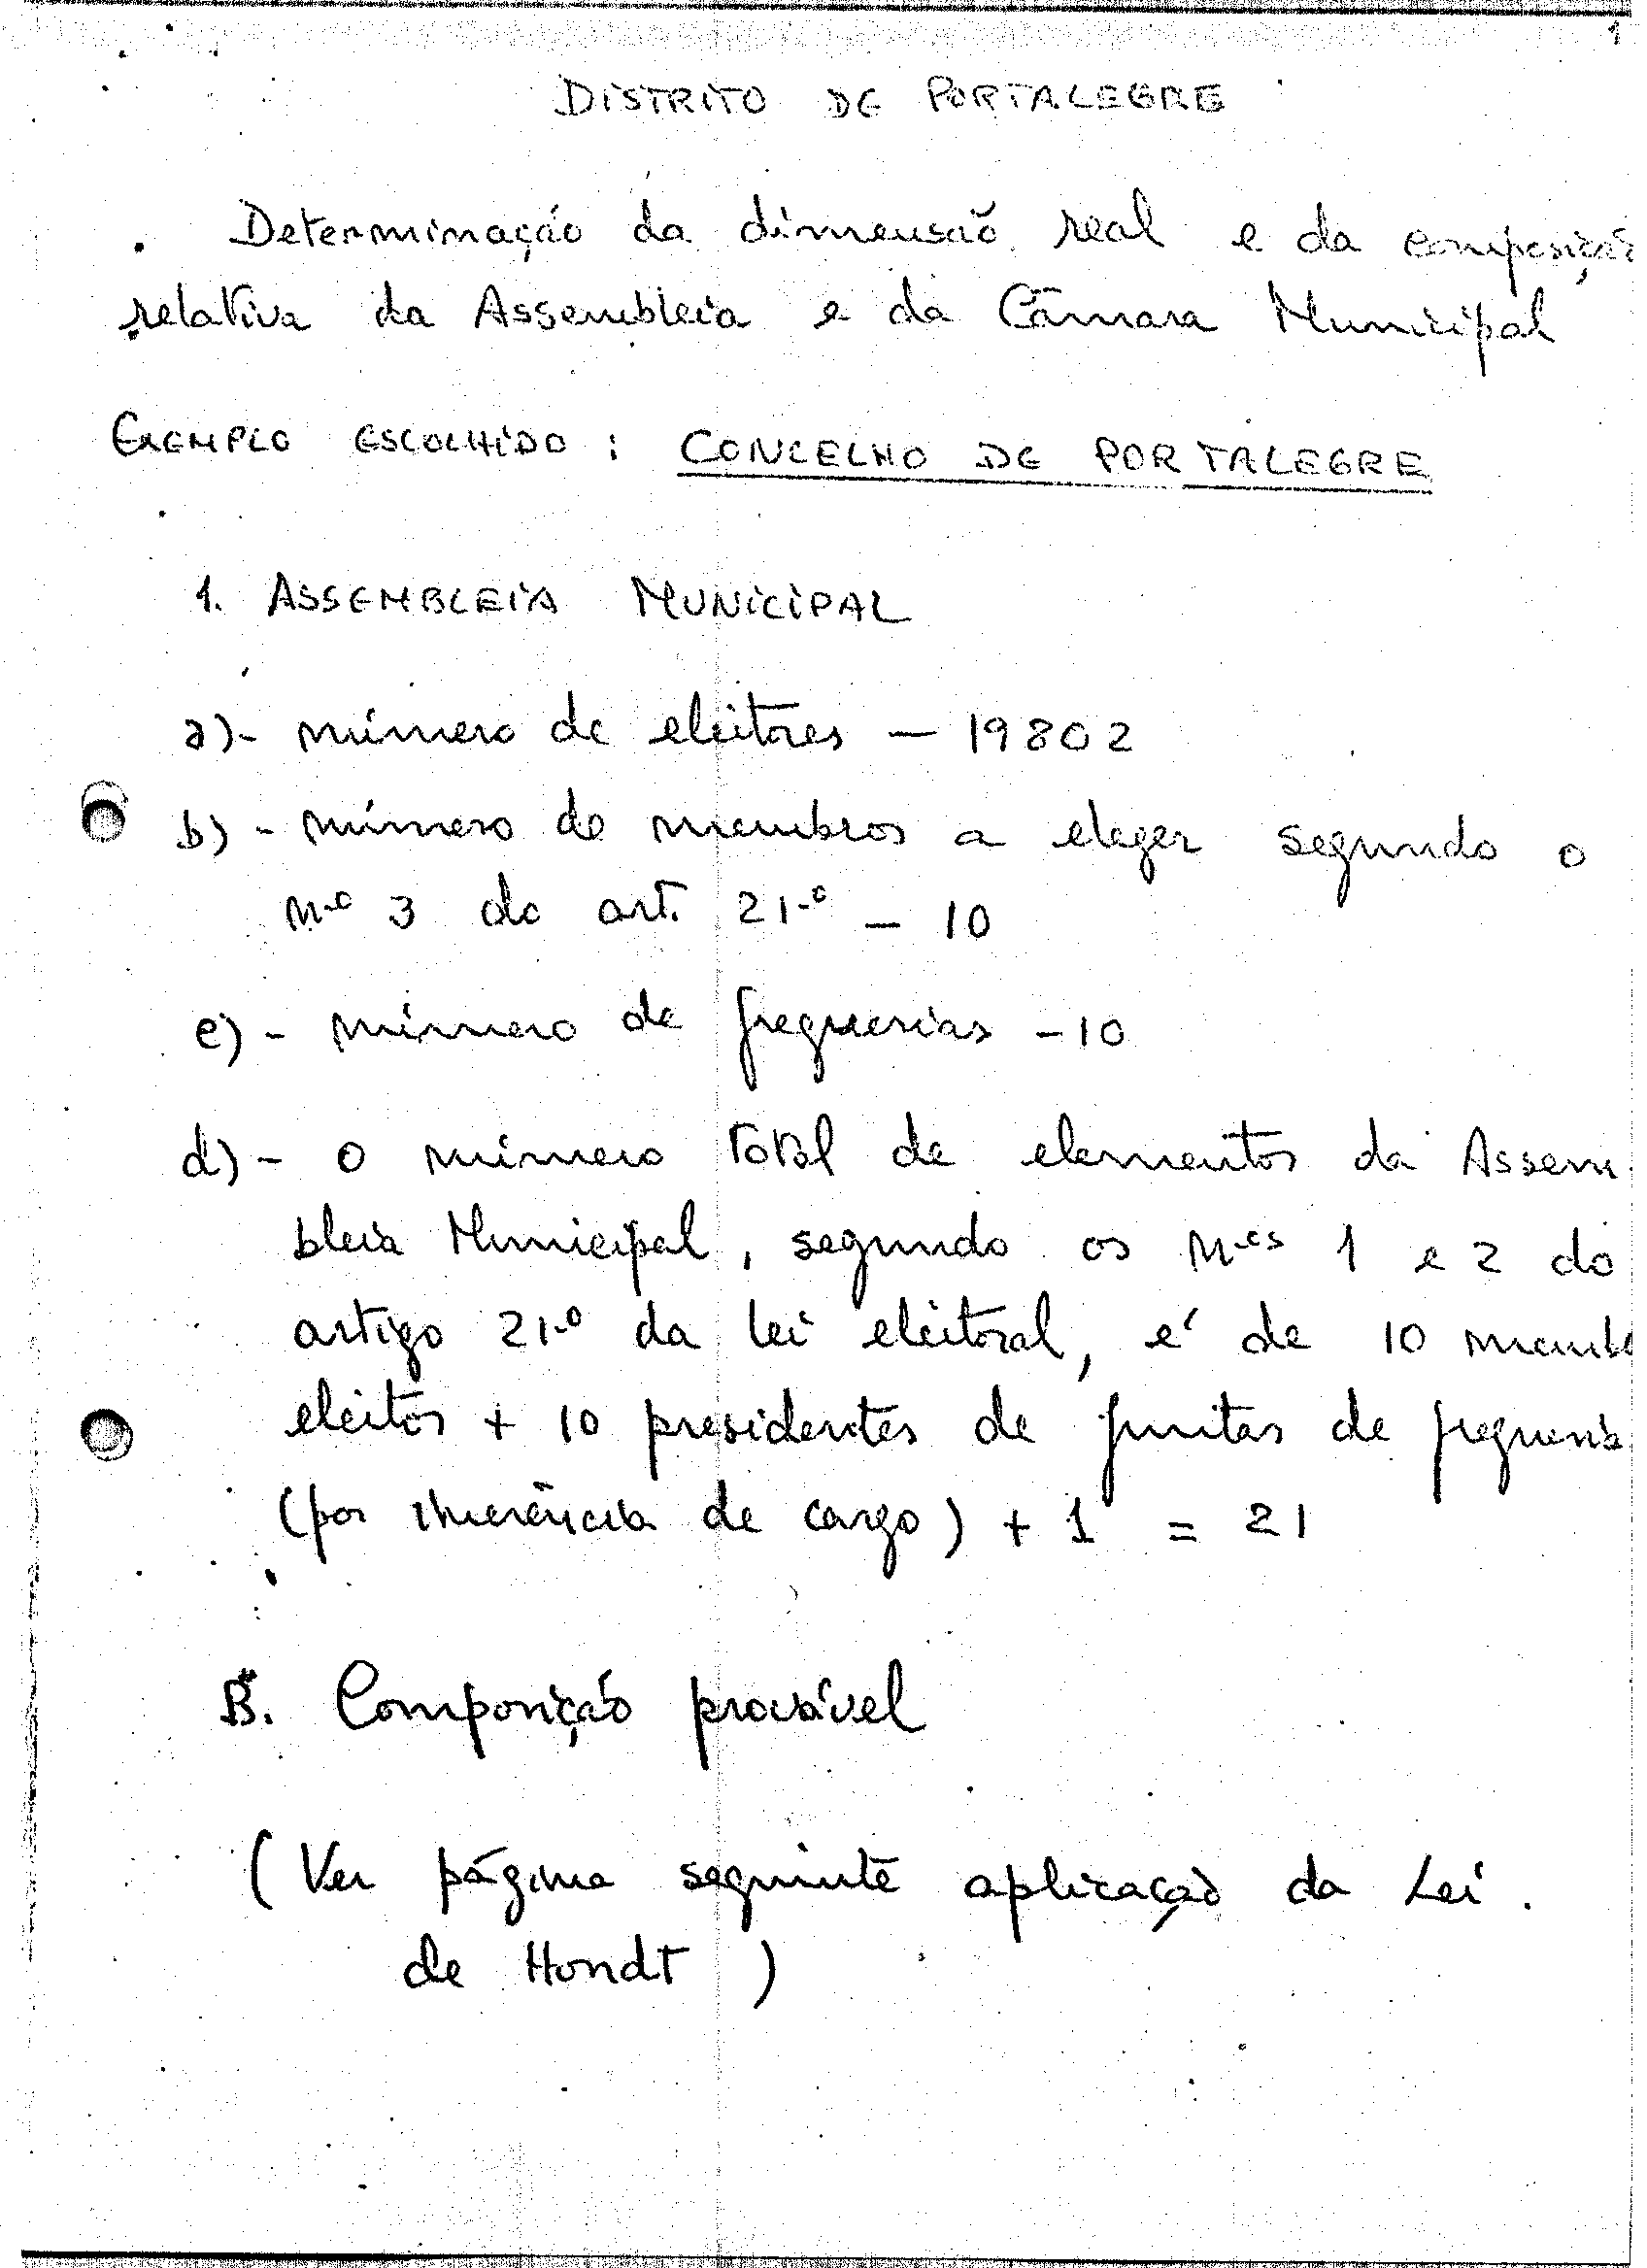 1
DISTRITO DE PORTALEGRE
. Determinação da dimensão real e da composição
relativa da Assembleia e da Câmara Municipal
EXEMPLO ESCOLHIDO : CONCELHO DE PORTALEGRE
1. ASSEMBLEIA MUNICIPAL
a)- número de eleitores - 19802
b)- número de membros a eleger segundo o
n.º 3 do art. 21.º - 10
c)- número de freguesias - 10
d)- O número total de elementos da Assem
bleia Municipal, segundo os n.os 1 e 2 do
artigo 21.º da lei eleitoral, é de 10 memb
eleitos + 10 presidentes de juntas de freguesia
(por inerência de cargo) + 1 = 21
B. Composição provável
(Ver página seguinte aplicação da Lei
de Hondt)